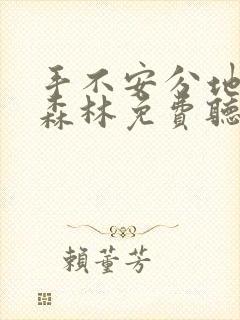 手不安分地
森林免費聽
賴董芳